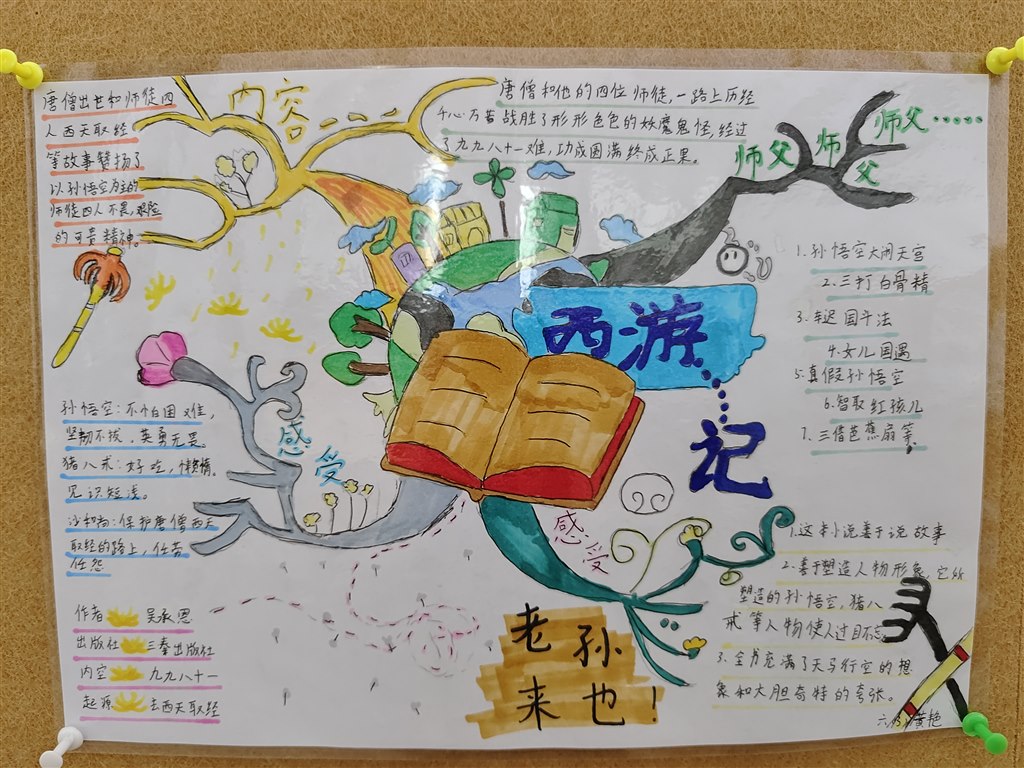 唐僧出世和师徒四
人西天取经
等故事赞扬了
以孙悟空为主的
师徒四人不畏艰险
的可贵精神。
内容
唐僧和他的四位师徒,一路上历经
千心万苦战胜了形形色色的妖魔鬼怪,经过
了九九八十一难,功成圆满终成正果。
师父
师父
师父……
西游记
1.孙悟空大闹天宫
2.三打白骨精
3.车迟国斗法
4.女儿国遇
5.真假孙悟空
6.智取红孩儿
7.三借芭蕉扇等,
孙悟空:不怕困难,
坚韧不拔,英勇无畏。
猪八戒:好吃,懒惰。
见识短浅。
沙和尚:保护唐僧西天
取经的路上,任劳
任怨
感受
感受
1.这本小说善于说故事
2.善于塑造人物形象,它所
塑造的孙悟空,猪八
戒等人物使人过目不忘
3.全书充满了天马行空的想
象和大胆奇特的夸张。
作者 吴承恩
出版社 三秦出版社
内容 九九八十一
起源 去西天取经
老孙
来也!
黄艳